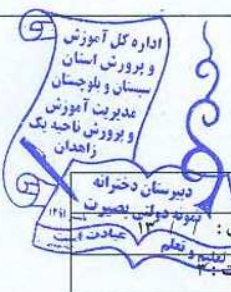 اداره کل آموزش
و پرورش استان
سیستان و بلوچستان
مدیریت آموزش
و پرورش ناحیه یک
زاهدان
دبیرستان دخترانه
نمونه دولتی بصیرت
۱۳ / /
عبادت است
تعلیم و تعلم